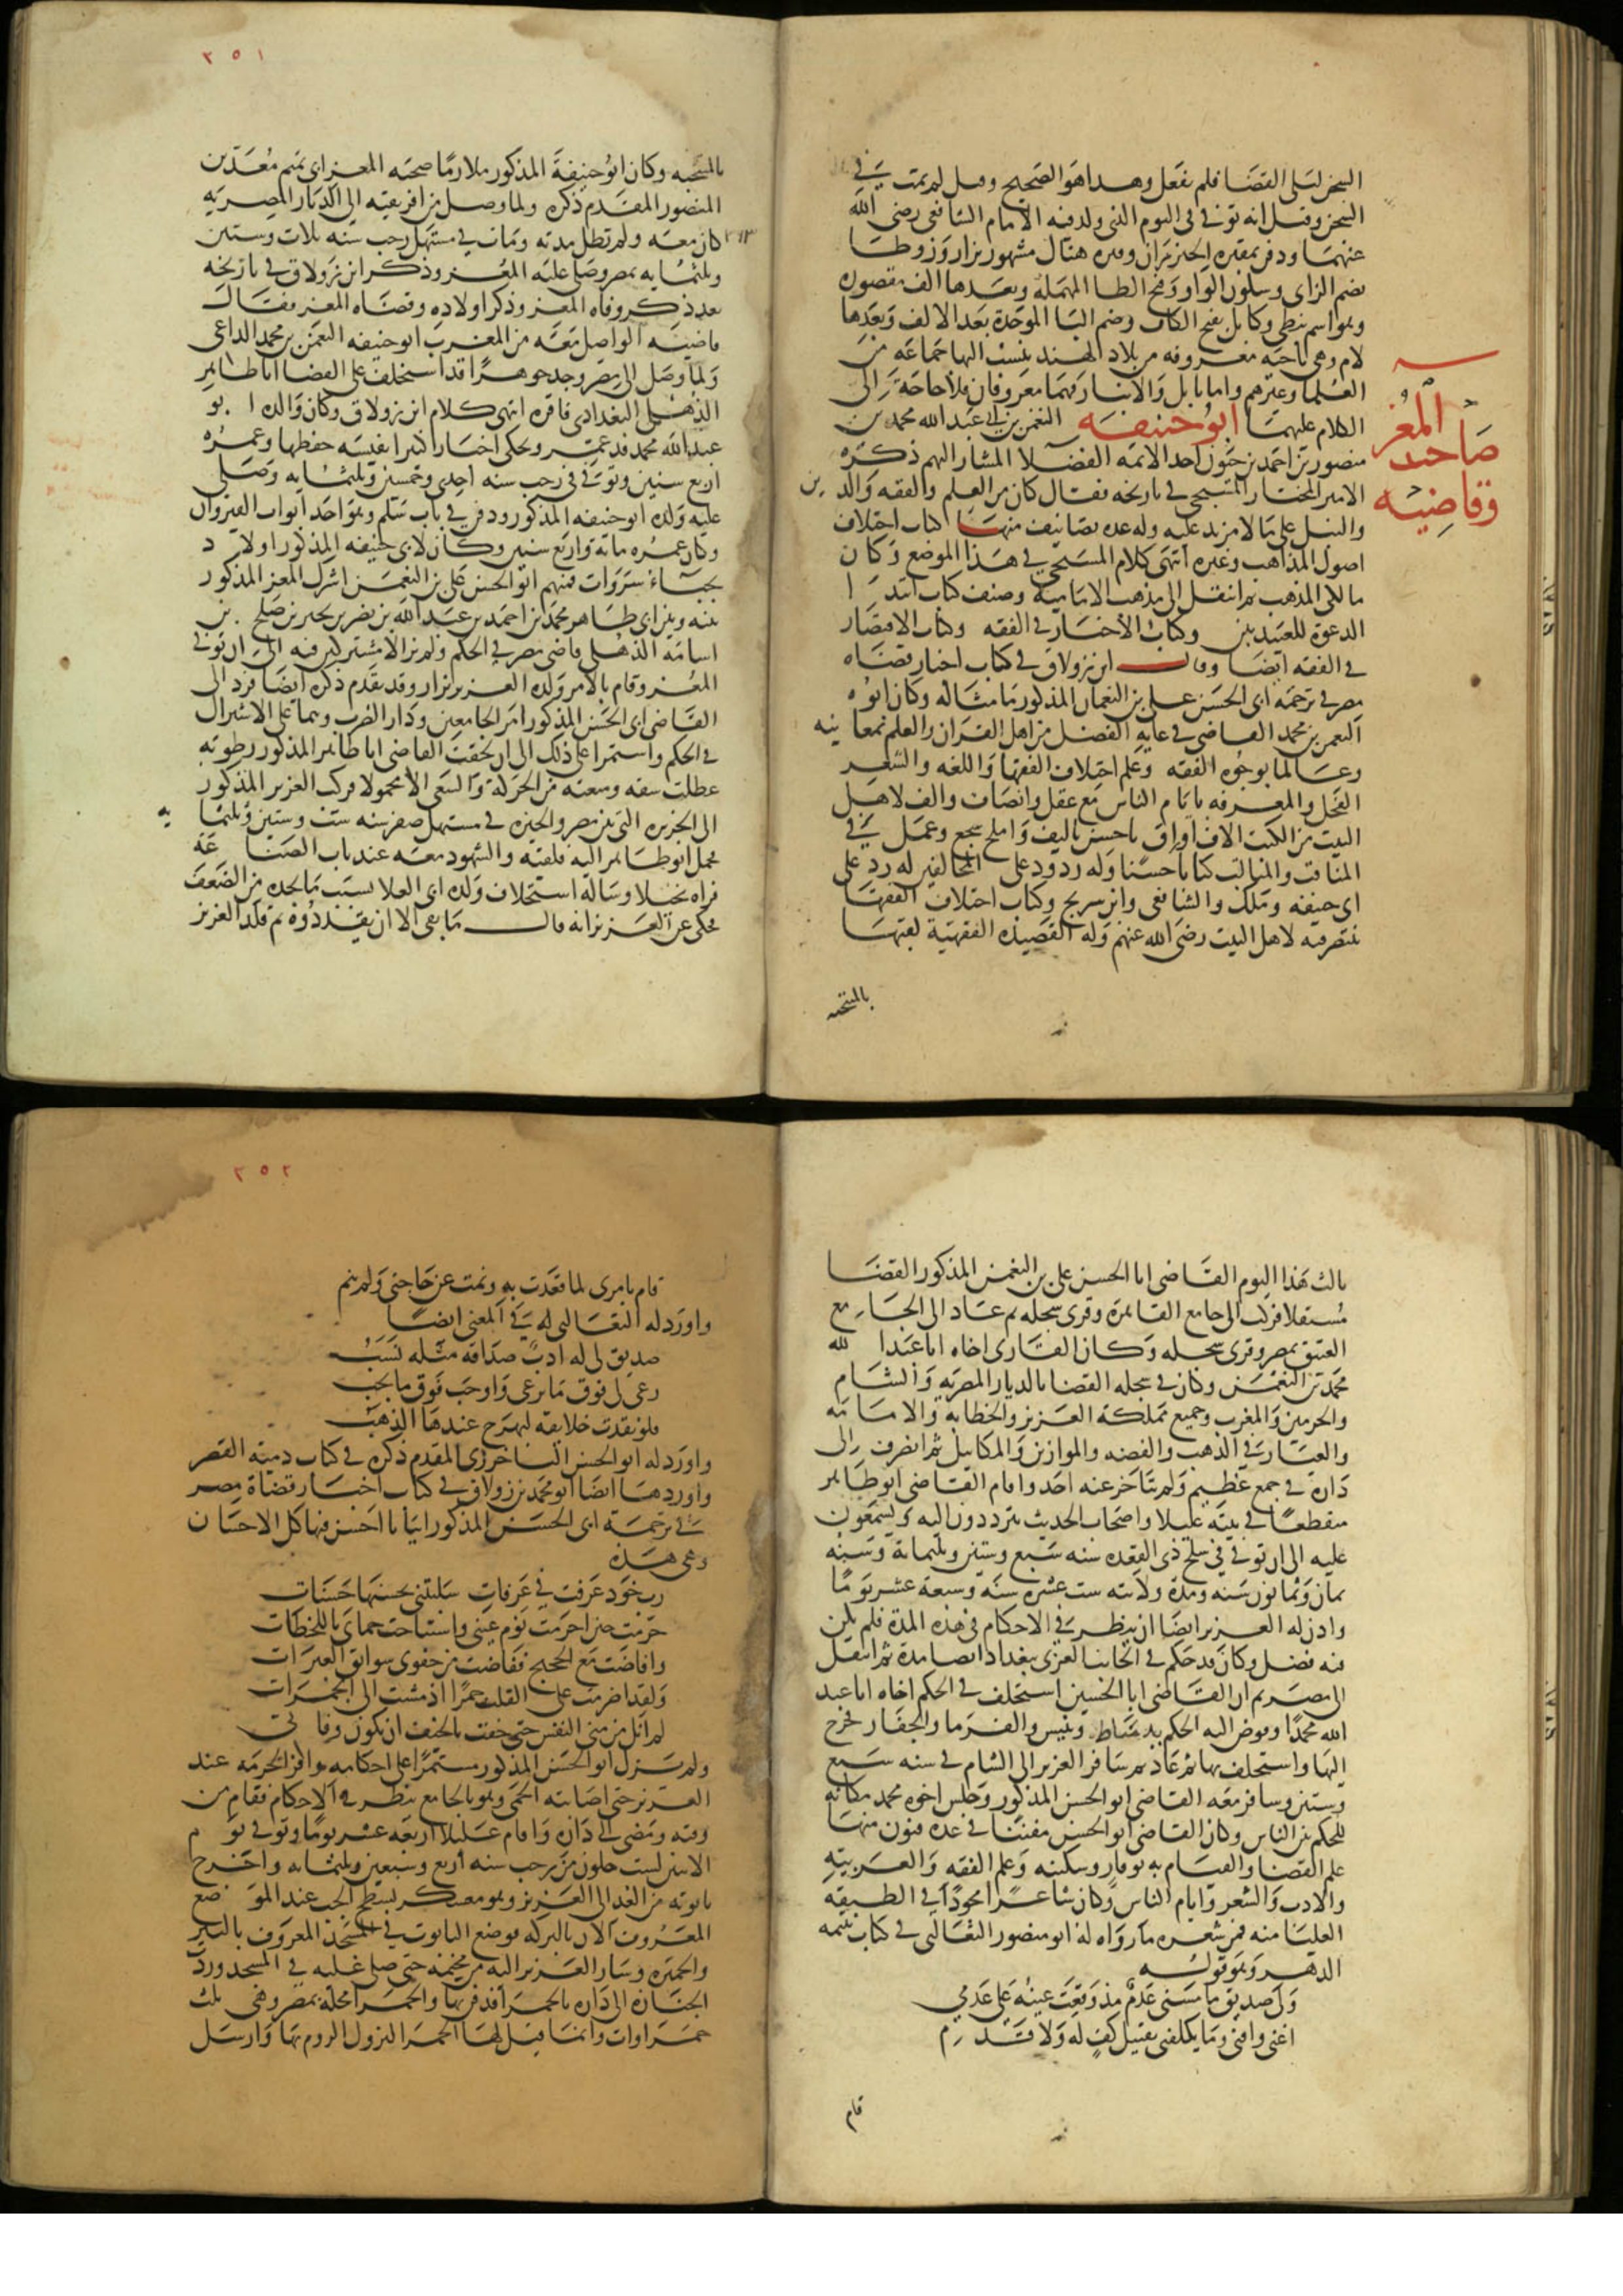 السجن ليلي القضا فلم يفعل وهذا هو الصحيح وقيل لم يمت في
السجن وقيل انه توفي في اليوم الذي ولد فيه الامام الشافعي رضي الله
عنهما ودفن بمقبرة الخيزران وقبره هناك مشهور يزار وزوطا
بضم الزاي وسكون الواو وفتح الطا المهملة وبعدها الف مقصورة
وهو اسم نبطي وكابل بفتح الكاف وضم البا الموحدة بعد الالف وبعدها
لام وهي ناحية معروفة من بلاد الهند ينسب اليها جماعة من
العلما وغيرهم واما بابل والانبار فهما معروفان فلا حاجة الى
الكلام عليهما ابو حنيفه النعمن بن ابي عبد الله محمد بن
صاحب المعز وقاضيه
منصور بن احمد بن حيون احد الائمة الفضلا المشار اليهم ذكره
الامير المختار المسبحي في تاريخه فقال كان من العلم والفقه والدين
والنبل على ما لا مزيد عليه وله عدة تصانيف منها كتاب اختلاف
اصول المذاهب وغيره انتهى كلام المسبحي في هذا الموضع وكان
مالكي المذهب ثم انتقل الى مذهب الامامية وصنف كتاب ابتدا
الدعوة للعبيديين وكتاب الاخبار في الفقه وكتاب الاقتصار
في الفقه ايضا وقال ابن زولاق في كتاب اخبار قضاه
مصر في ترجمة ابي الحسن علي بن النعمان المذكور ما مثاله وكان ابوه
النعمن بن محمد القاضي في غاية الفضل من اهل القران والعلم بمعانيه
وعالما بوجوه الفقه وعلم اختلاف الفقها واللغه والشعر
الفحل والمعرفه بايام الناس مع عقل وانصاف والف لاهل
البيت من الكتب الاف اوراق باحسن تاليف واملح سجع وعمل في
المناقب والمثالب كتابا حسنا وله ردود على المخالفين له رد على
ابي حنيفه وملك والشافعي وابن سريج وكتاب اختلاف الفقها
ينتصر فيه لاهل البيت رضي الله عنهم وله القصيدة الفقهية لقبها
بالمنتخبه
٢٥١
بالمنتخبه وكان ابو حنيفة المذكور ملازما صحبه المعز ابي تميم معد بن
المنصور المقدم ذكره ولما وصل من افريقيه الى الديار المصريه
كان معه ولم تطل مدته ومات في مستهل رجب سنه ثلاث وستين
٣٦٣
وثلثمايه بمصر وصلى عليه المعز وذكر ابن زولاق في تاريخه
بعد ذكر وفاه المعز وذكر اولاده وقضاه المعز فقال
قاضيه الواصل معه من المغرب ابو حنيفه النعمن بن محمد الداعي
ولما وصل الى مصر وجد جوهرا قد استخلف على القضا ابا طاهر
الذهلي البغدادي فاقره انتهى كلام ابن زولاق وكان والده ابو
عبد الله محمد قد عمر ويحكي اخبارا كثيرا نفيسه حفظها وعمره
اربع سنين وتوفي في رجب سنه احدى وخمسين وثلثمايه وصلى
عليه ولده ابو حنيفه المذكور ودفن في باب سلم وهو احد ابواب القيروان
وكان عمره مائة واربع سنين وكان لابي حنيفه المذكور اولاد
نجباء سروات فمنهم ابو الحسن علي بن النعمن اشرك المعز المذكور
بينه وبين ابي طاهر محمد بن احمد بن عبد الله بن نصر بن بجير بن صلح بن
اسامة الذهلي قاضي مصر في الحكم ولم يزالا مشتركين فيه الى ان توفي
المعز وقام بالامر ولده العزيز نزار وقد تقدم ذكره ايضا فرد الى
القاضي ابي الحسن المذكور امر الجامعين ودار الضرب وهما على الاشتراك
في الحكم واستمرا على ذلك الى ان لحقت القاضي ابا طاهر المذكور رطوبه
عطلت شقه ومنعته من الحركة والسعي الا محمولا فركب العزيز المذكور
الى الجزيره التي بين مصر والجيزه في مستهل صفر سنه ست وستين وثلثمايه
فحمل ابو طاهر اليه فلقيه والشهود معه عند باب الصناعة
فراه نحيلا وساله استخلاف ولده ابي العلا بسبب ما يجده من الضعف
فحكي عن العزيز انه قال ما بقي الا ان يقددوه ثم قلد العزيز
ثالث هذا اليوم القاضي ابا الحسن علي بن النعمن المذكور القضا
مستقلا فركب الى جامع القاهرة وقرى سجله ثم عاد الى الجامع
العتيق بمصر وقرى سجله وكان القارى اخاه ابا عبد الله
محمد بن النعمن وكان في سجله القضا بالديار المصرية والشام
والحرمين والمغرب وجميع مملكة العزيز والخطابة والامامة
والعيار في الذهب والفضه والموازين والمكاييل ثم انصرف الى
داره في جمع عظيم ولم يتاخر عنه احد واقام القاضي ابو طاهر
منقطعا في بيته عليلا واصحاب الحديث يترددون اليه ويسمعون
عليه الى ان توفي في سلخ ذي القعده سنه سبع وستين وثلثمائة وسنه
ثمان وثمانون سنه ومدة ولايته ست عشرة سنة وسبعة عشر يوما
واذن له العزيز ايضا ان ينظر في الاحكام في هذه المدة فلم يكن
فيه فضل وكان قد حكم في الجانب الغربي ببغداد ايضا مدة ثم انتقل
الى مصر ثم ان القاضي ابا الحسين استخلف في الحكم اخاه ابا عبد
الله محمدا وفوض اليه الحكم بدمياط وتنيس والفرما والجفار فخرج
اليها واستخلف بها ثم عاد ثم سافر العزيز الى الشام في سنه سبع
وستين وسافر معه القاضي ابو الحسن المذكور وجلس اخوه محمد مكانه
للحكم بين الناس وكان القاضي ابو الحسن مفننا في عدة فنون منها
علم القضا والقيام به بوقار وسكينه وعلم الفقه والعربية
والادب والشعر وايام الناس وكان شاعرا مجودا في الطبقه
العليا منه فمن شعره ما رواه له ابو منصور الثعالبي في كتاب يتيمه
الدهر وهو قوله
ولي صديق ما مسني عدم مذ وقعت عينه على عدمي
اغنى واقنى وما يكلفني تقبيل كف له ولا قدم
قام
٢٥٢
قام بامري لما قعدت به ونمت عن حاجتي ولم ينم
واورد له الثعالبي له في المعنى ايضا
صديق لي له ادب صداقة مثله نسب
رعى لي فوق ما يرعى واوجب فوق ما يجب
فلو نقدت خلايقه لبهرج عندها الذهب
واورد له ابو الحسن الباخرزي المقدم ذكره في كتاب دمية القصر
واوردها ايضا ابو محمد بن زولاق في كتاب اخبار قضاة مصر
في ترجمة ابي الحسن المذكور ابياتا احسن فيها كل الاحسان
وهي هذه
رب خود عرفت في عرفات سلبتني بحسنها حسنات
حرمت حين احرمت نوم عيني واستباحت حماي باللحظات
وافاضت مع الحجيج ففاضت من جفوني سوابق العبرات
ولقد اضرمت على القلب جمرا اذ مشت الى الجمرات
لم انل من منى النفس حتى خفت بالخيف ان تكون وفاتي
ولم يزل ابو الحسن المذكور مستمرا على احكامه وافر الحرمة عند
العزيز حتى اصابته الحمى وهو بالجامع ينظر في الاحكام فقام من
وقته ومضى الى داره واقام عليلا اربعة عشر يوما وتوفي يوم
الاثنين لست خلون من رجب سنه اربع وسبعين وثلثمائه واخرج
تابوته من الغد الى العزيز وهو معسكر بسطح الجب عند الموضع
المعروف الان بالبركه فوضع التابوت في المسجد المعروف بالبير
والجميزه وسار العزيز اليه من مخيمه حتى صلى عليه في المسجد وردت
الجنازة الى داره بالحمرا فدفن بها والحمرا محلة بمصر وهي ثلث
حمراوات وانما قيل لها الحمرا لنزول الروم بها وارسل